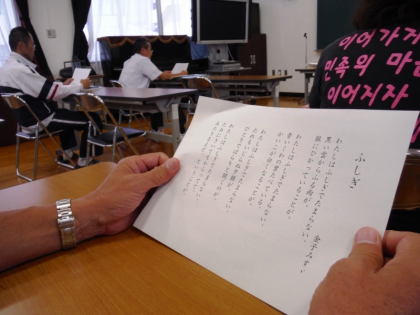 ふしぎ
金子みすゞ
わたしはふしぎでたまらない、
黒い雲からふる雨が、
銀にひかっていることが。
わたしはふしぎでたまらない、
青いくわの葉たべている、
かいこが白くなることが。
わたしはふしぎでたまらない、
たれもいじらぬ夕顔が、
ひとりでぱらりと開くのが。
わたしはふしぎでたまらない、
たれにきいてもわらってて、
あたりまえだ、ということが。
이어가게
민족의 마
이어지자